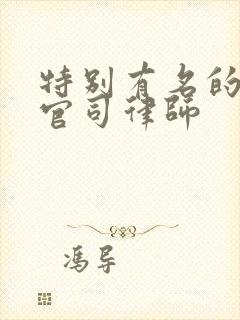 特别有名的
官司律师
冯导